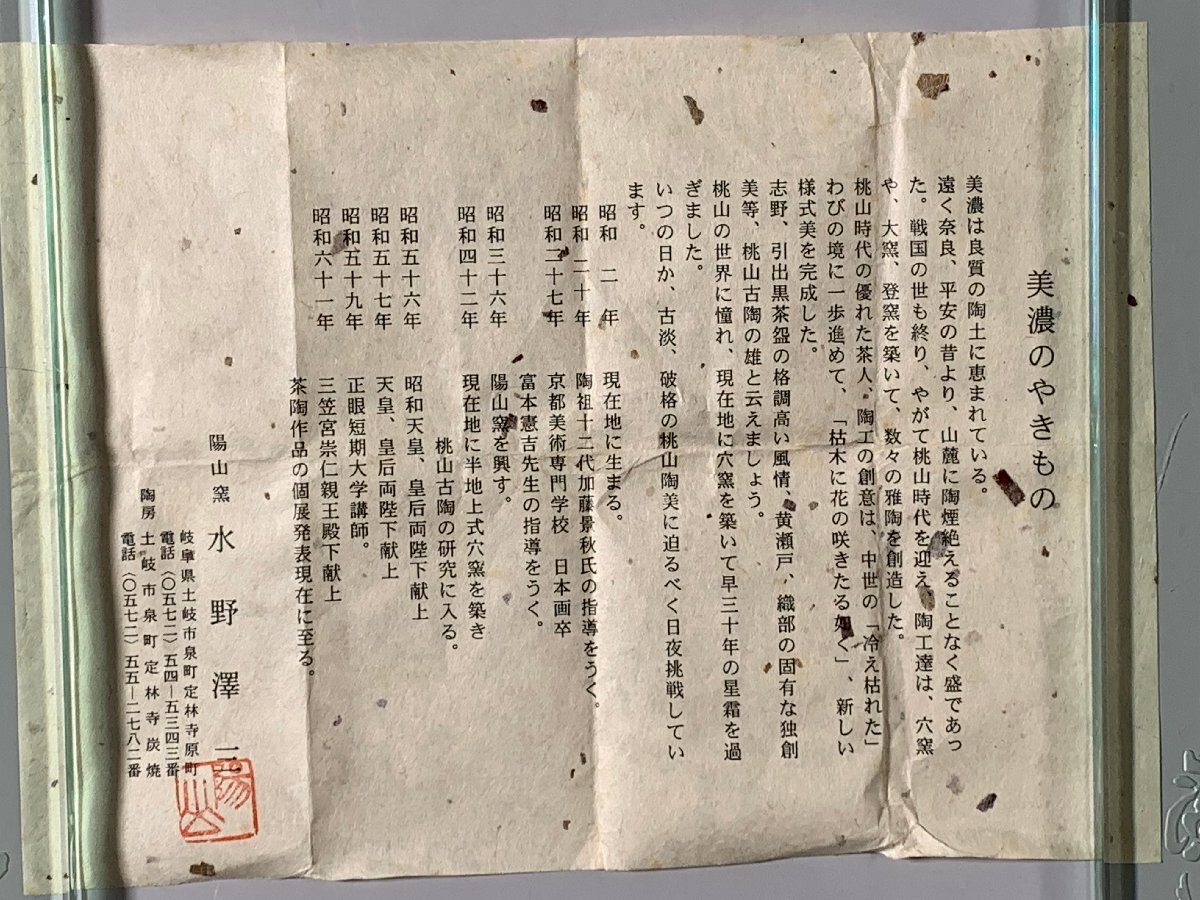 美濃のやきもの
美濃は良質の陶土に恵まれている。
遠く奈良、平安の昔より、山麓に陶煙絶えることなく盛であっ
た。戦国の世も終り、やがて桃山時代を迎え、陶工達は、穴窯
や、大窯、登窯を築いて、数々の雅陶を創造した。
桃山時代の優れた茶人、陶工の創意は、中世の「冷え枯れた」
わびの境に一歩進めて、「枯木に花の咲きたる如く」、新しい
様式美を完成した。
志野、引出黒茶盌の格調高い風情、黄瀬戸、織部の固有な独創
美等、桃山古陶の雄と云えましょう。
桃山の世界に憧れ、現在地に穴窯を築いて早三十年の星霜を過
ぎました。
いつの日か、古淡、破格の桃山陶美に迫るべく日夜挑戦してい
ます。
昭和 二 年 現在地に生まる。
昭和 二十年 陶祖十二代加藤景秋氏の指導をうく。
昭和二十七年 京都美術専門学校 日本画卒
富本憲吉先生の指導をうく。
昭和三十六年 陽山窯を興す。
昭和四十二年 現在地に半地上式穴窯を築き
桃山古陶の研究に入る。
昭和五十六年 昭和天皇、皇后両陛下献上
昭和五十七年 天皇、皇后両陛下献上
昭和五十九年 正眼短期大学講師。
昭和六十一年 三笠宮崇仁親王殿下献上
茶陶作品の個展発表現在に至る。
陽山窯 水野澤三
岐阜県土岐市泉町定林寺原町
電話（〇五七二）五四―五三四三番
陶房 土岐市泉町定林寺炭焼
電話（〇五七二）五五―二七八二番
陽山